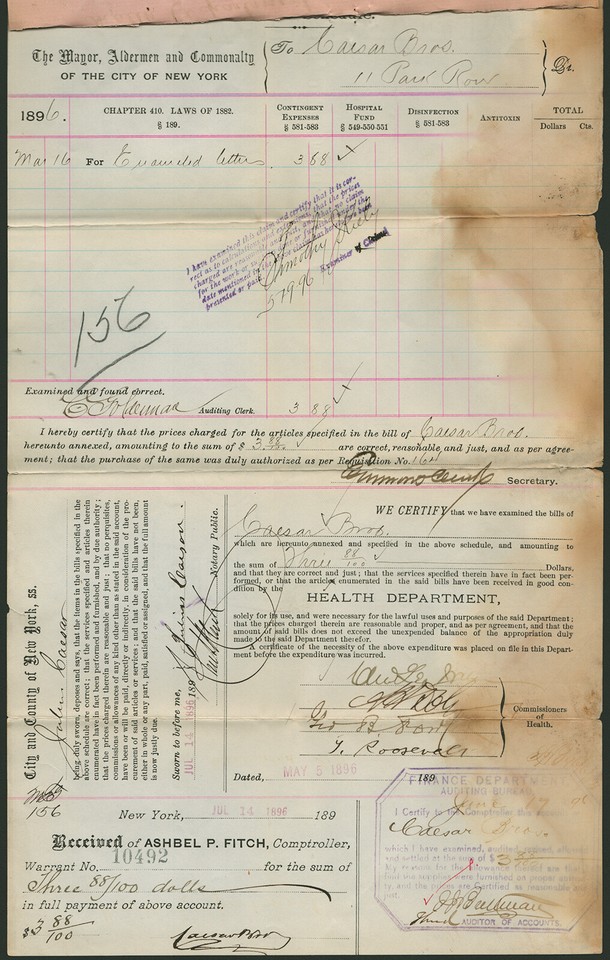 The Mayor, Aldermen and Commonalty
OF THE CITY OF NEW YORK
To Caesar Bros.
11 Park Row
Dr.
1896.
CHAPTER 410. LAWS OF 1882.
§ 189.
CONTINGENT
EXPENSES
§ 581-583
HOSPITAL
FUND
§ 549-550-551
DISINFECTION
§ 581-583
ANTITOXIN
TOTAL
Dollars Cts.
Mar 16 For Enameled letters 3 88
I have examined this claim and certify that it is cor-
rect as to calculations and extensions, that the prices
charged are reasonable and just
for the work or
date mentioned
presented or paid
Examiner of Claims
5/19 96
156
Examined and found correct.
Auditing Clerk. 3 88
I hereby certify that the prices charged for the articles specified in the bill of Caesar Bros.
hereunto annexed, amounting to the sum of $ 3 88/100 are correct, reasonable and just, and as per agree-
ment; that the purchase of the same was duly authorized as per Requisition No. 164
Secretary.
WE CERTIFY that we have examined the bills of
Caesar Bros.
which are hereunto annexed and specified in the above schedule, and amounting to
the sum of Three 88/100 Dollars,
and that they are correct and just; that the services specified therein have in fact been per-
formed, or that the articles enumerated in the said bills have been received in good con-
dition by the
HEALTH DEPARTMENT,
solely for its use, and were necessary for the lawful uses and purposes of the said Department;
that the prices charged therein are reasonable and proper, and as per agreement, and that the
amount of said bills does not exceed the unexpended balance of the appropriation duly
made to the said Department therefor.
A certificate of the necessity of the above expenditure was placed on file in this Depart-
ment before the expenditure was incurred.
T. Roosevelt
Commissioners
of
Health.
Dated, MAY 5 1896 189
City and County of New York, ss.
Julius Caesar
being duly sworn, deposes and says, that the items in the bills specified in the
above schedule are correct; that the services specified and articles therein
enumerated have in fact been performed and furnished, and by due authority;
that the prices charged therein are reasonable and just; that no perquisites,
commissions or allowances of any kind other than as stated in the said account,
have been or will be paid, directly or indirectly, in consideration of the pro-
curement of said articles or services; and that the said bills have not been,
either in whole or any part, paid, satisfied or assigned, and that the full amount
is now justly due.
Sworn to before me,
JUL 14 1896 189
Julius Caesar.
Notary Public.
156
New York, JUL 14 1896 189
Received of ASHBEL P. FITCH, Comptroller,
Warrant No. 10492 for the sum of
Three 88/100 dolls
in full payment of above account.
$3 88/100
Caesar Bros
FINANCE DEPARTMENT
AUDITING BUREAU
I Certify to the Comptroller that the account of
Caesar Bros.
which I have examined, audited, adjusted
and settled at the sum of $ 3 88/100
AUDITOR OF ACCOUNTS.